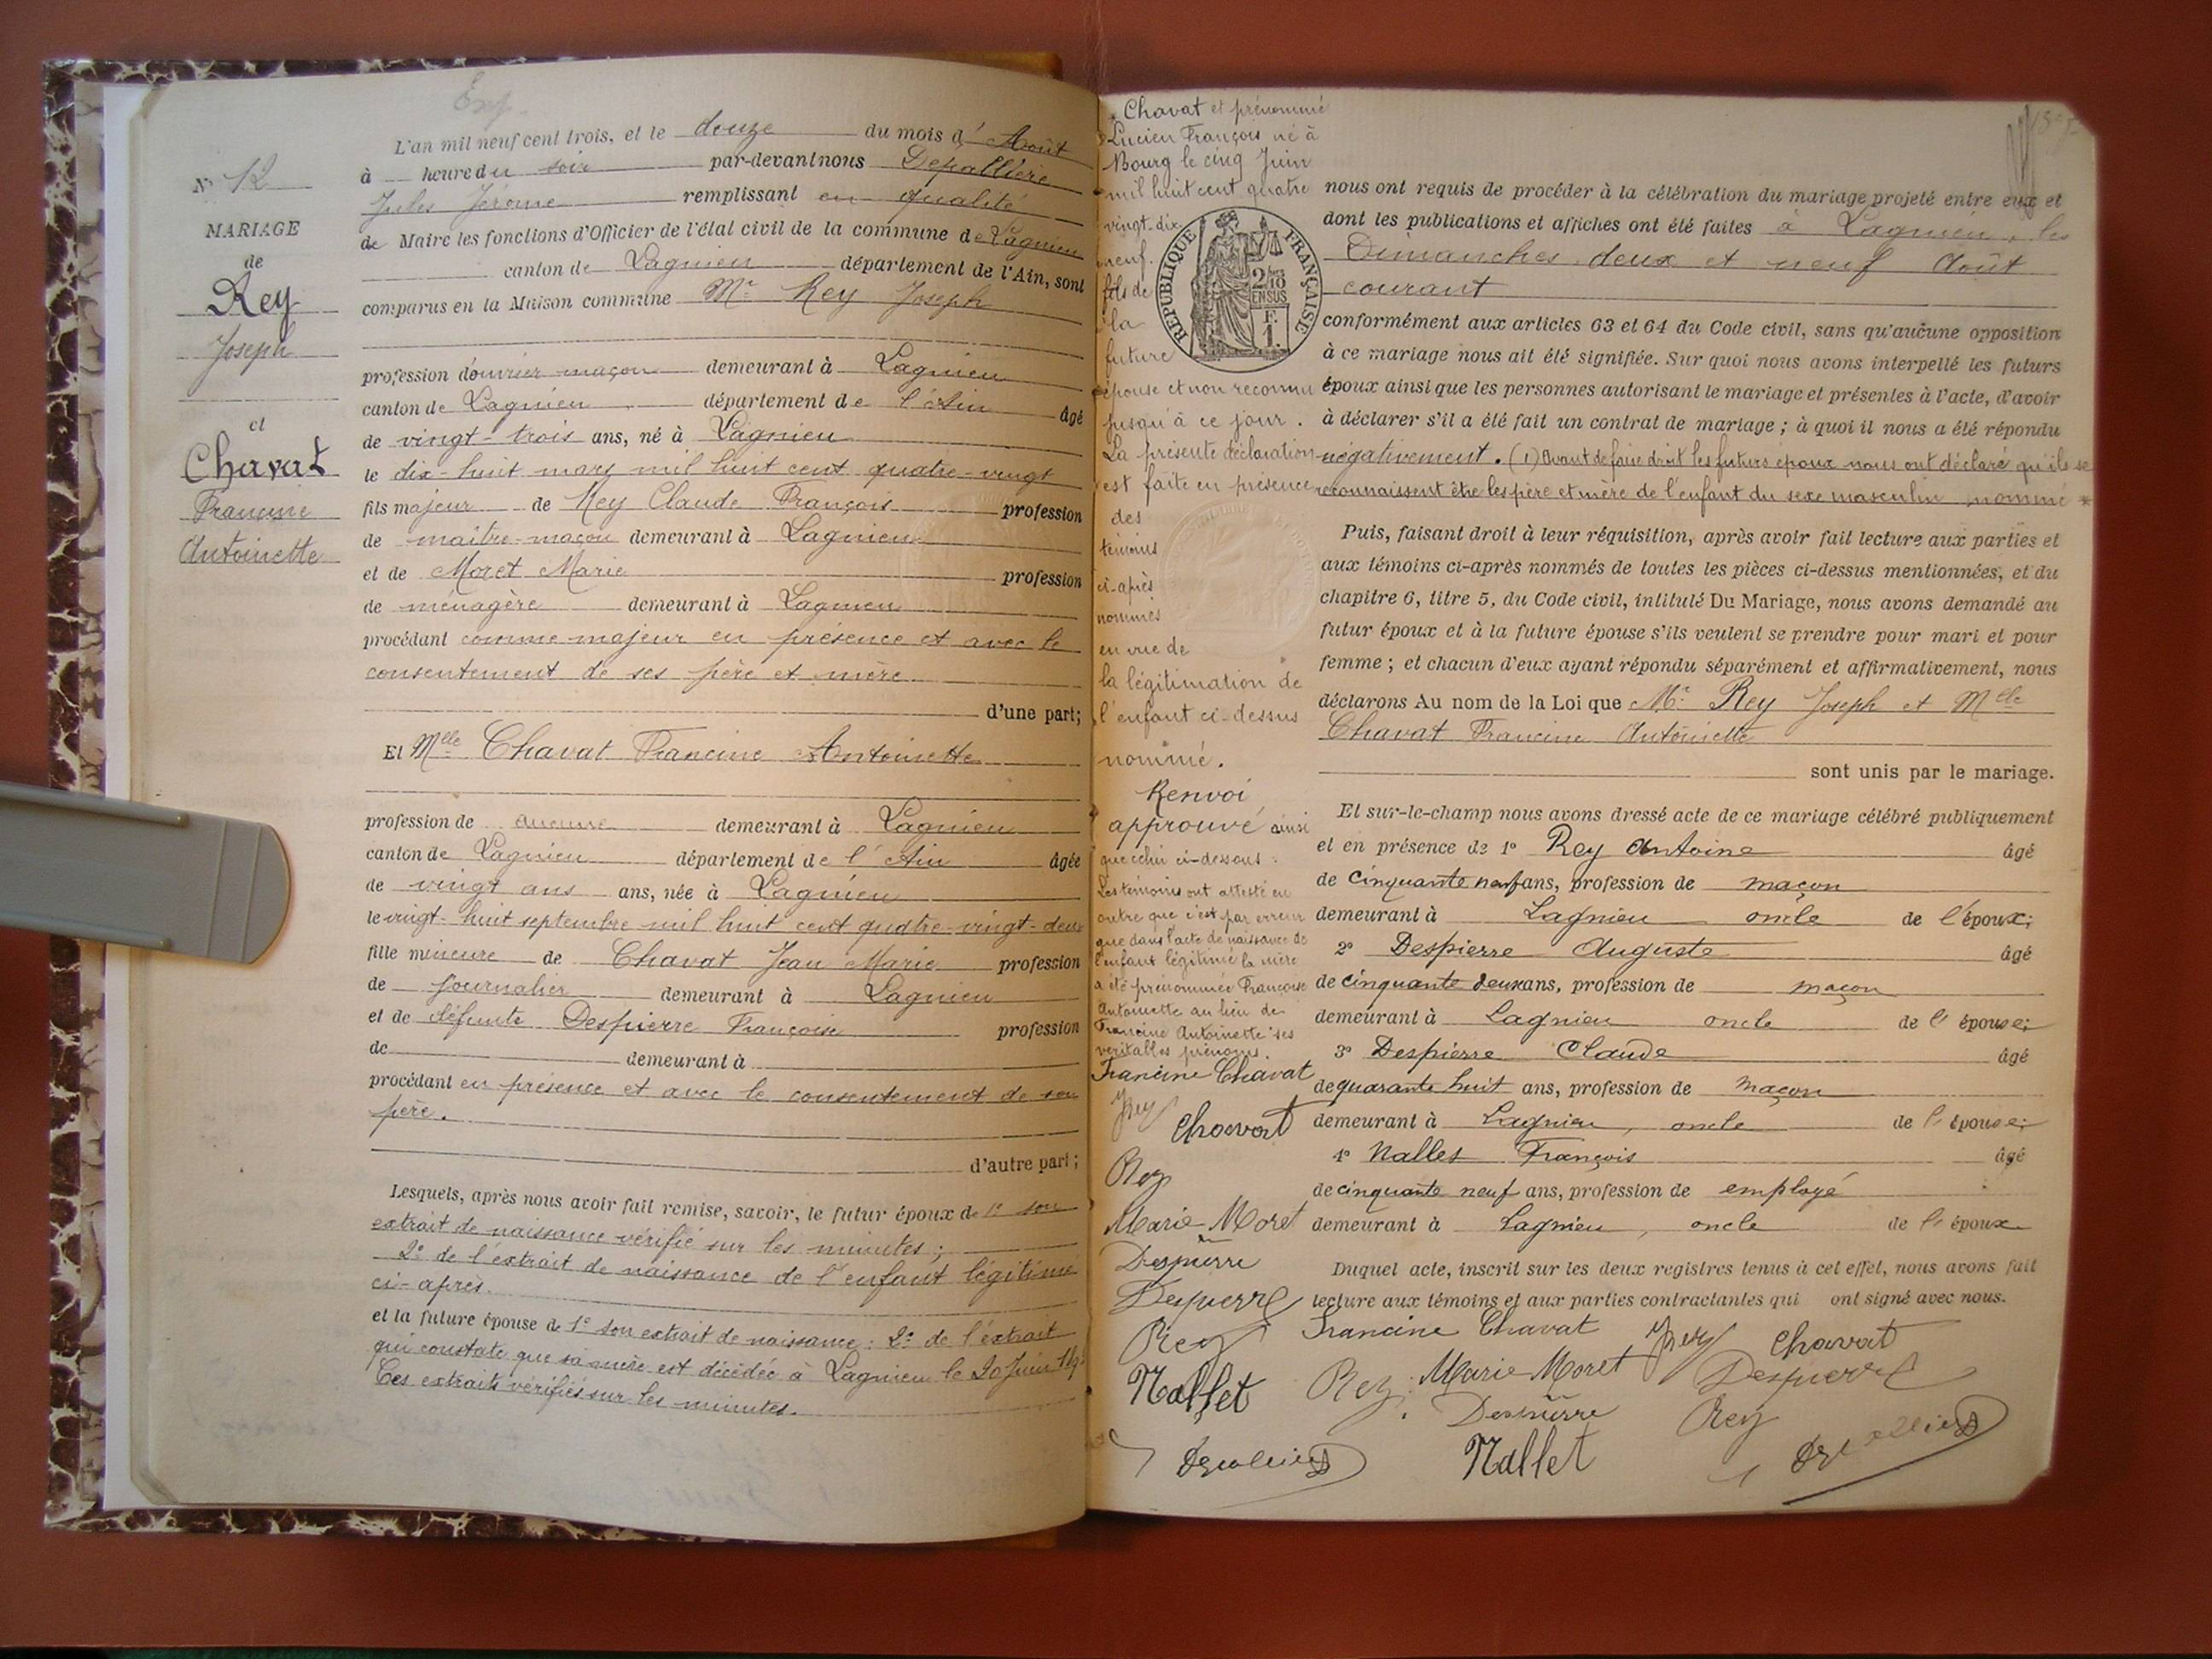 Exp.
N° 12
MARIAGE
de
Rey
Joseph
et
Chavat
Francine
Antoinette
L'an mil neuf cent trois, et le douze du mois d' Août
à heure du soir par-devant nous Depallière
Jules Jérome remplissant en qualité
de Maire les fonctions d'Officier de l'état civil de la commune de Lagnieu
canton de Lagnieu département de l'Ain, sont
comparus en la Maison commune Mr Rey Joseph
profession d'ouvrier maçon demeurant à Lagnieu
canton de Lagnieu département de l'Ain âgé
de vingt-trois ans, né à Lagnieu
le dix-huit mars mil huit cent quatre-vingt
fils majeur de Rey Claude François profession
de maître-maçon demeurant à Lagnieu
et de Moret Marie profession
de ménagère demeurant à Lagnieu
procédant comme majeur en présence et avec le
consentement de ses père et mère.
d'une part;
Et Melle Chavat Francine Antoinette
profession de aucune demeurant à Lagnieu
canton de Lagnieu département de l'Ain âgée
de vingt ans ans, née à Lagnieu
le vingt-huit septembre mil huit cent quatre-vingt-deux
fille mineure de Chavat Jean Marie profession
de journalier demeurant à Lagnieu
et de défunte Despierre Françoise profession
de demeurant à
procédant en présence et avec le consentement de son
père.
d'autre part;
Lesquels, après nous avoir fait remise, savoir, le futur époux de 1° son
extrait de naissance vérifié sur les minutes;
2° de l'extrait de naissance de l'enfant légitimé
ci-après.
et la future épouse de 1° son extrait de naissance: 2° de l'extrait
qui constate que sa mère est décédée à Lagnieu le 20 Juin
Ces extraits vérifiés sur les minutes.
* Chavat et prénommé
Lucien François né à
Bourg le cinq Juin
mil huit cent quatre
vingt-dix
neuf.
fils de
la
future
épouse et non reconnu
jusqu'à ce jour.
La présente déclaration
est faite en présence
des
témoins
ci-après
nommés
en vue de
la légitimation de
l'enfant ci-dessus
nommé.
Renvoi
approuvé ainsi
que celui ci-dessous:
Les témoins ont attesté en
outre que c'est par erreur
que dans l'acte de naissance de
l'enfant légitimé la mère
a été prénommée Françoise
Antoinette au lieu de
Francine Antoinette ses
véritables prénoms.
Francine Chavat
JRey
Chavat
Rey
Marie Moret
Despierre
Despierre
Rey
Nallet
Depallière
RÉPUBLIQUE FRANÇAISE
2/10
EN SUS
F.
1.
nous ont requis de procéder à la célébration du mariage projeté entre eux et
dont les publications et affiches ont été faites à Lagnieu, les
Dimanches deux et neuf Août
courant
conformément aux articles 63 et 64 du Code civil, sans qu'aucune opposition
à ce mariage nous ait été signifiée. Sur quoi nous avons interpellé les futurs
époux ainsi que les personnes autorisant le mariage et présentes à l'acte, d'avoir
à déclarer s'il a été fait un contrat de mariage; à quoi il nous a été répondu
négativement. (1) Avant de faire droit les futurs époux nous ont déclaré qu'ils se
reconnaissent être les père et mère de l'enfant du sexe masculin nommé *
Puis, faisant droit à leur réquisition, après avoir fait lecture aux parties et
aux témoins ci-après nommés de toutes les pièces ci-dessus mentionnées, et du
chapitre 6, titre 5, du Code civil, intitulé Du Mariage, nous avons demandé au
futur époux et à la future épouse s'ils veulent se prendre pour mari et pour
femme; et chacun d'eux ayant répondu séparément et affirmativement, nous
déclarons Au nom de la Loi que Mr Rey Joseph et Melle
Chavat Francine Antoinette
sont unis par le mariage.
Et sur-le-champ nous avons dressé acte de ce mariage célébré publiquement
et en présence de 1° Rey Antoine âgé
de cinquante neuf ans, profession de maçon
demeurant à Lagnieu oncle de l'époux;
2° Despierre Auguste âgé
de cinquante deux ans, profession de maçon
demeurant à Lagnieu oncle de l'épouse;
3° Despierre Claude âgé
de quarante huit ans, profession de maçon
demeurant à Lagnieu, oncle de l'épouse;
4° Nalles François âgé
de cinquante neuf ans, profession de employé
demeurant à Lagnieu, oncle de l'époux
Duquel acte, inscrit sur les deux registres tenus à cet effet, nous avons fait
lecture aux témoins et aux parties contractantes qui ont signé avec nous.
Francine Chavat JRey Chavat
Rey Marie Moret Despierre
Despierre Rey
Nallet Depallière